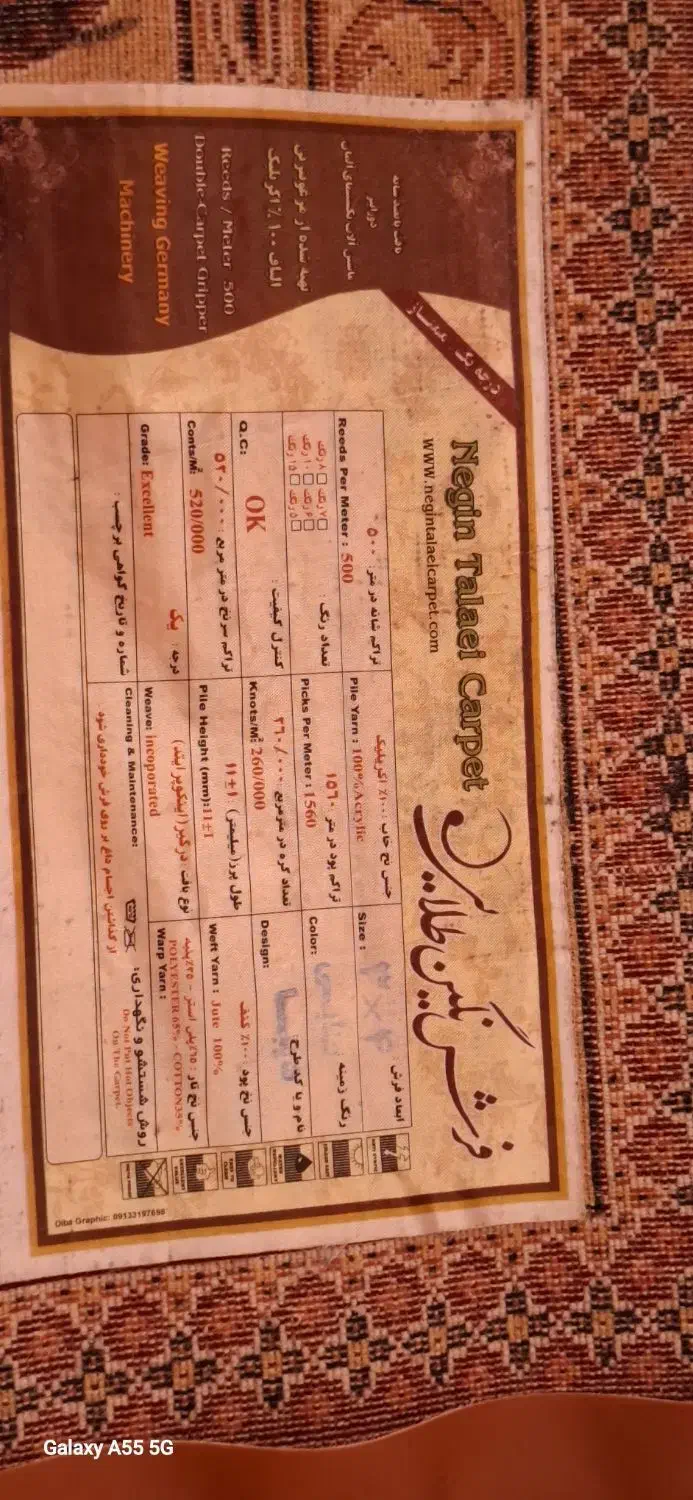 Negin Talaei Carpet
www.negintalaeicarpet.com
فرش نگین طلایی
درجه یک ممتاز
بافت با سه شانه
ماشین آلات تکستیمای آلمان
تهیه شده از مرغوبترین
الیاف ۱۰۰٪ اکریلیک
Reeds / Meter 500
Double-Carpet Gripper
Weaving Germany
Machinery
تراکم شانه در متر: ۵۰۰
Reeds Per Meter : 500
جنس نخ خاب : ۱۰۰٪ اکریلیک
Pile Yarn : 100% Acrylic
ابعاد فرش :
Size : ۳×۴
تعداد رنگ :
۷ رنگ ۸ رنگ
۶ رنگ ۱۰ رنگ
۵ رنگ ۱۵ رنگ
تراکم پود در متر : ۱۵۶۰
Picks Per Meter : 1560
رنگ زمینه :
Color:
کنترل کیفیت :
Q.C: OK
تعداد گره در متر مربع : ۲۶۰/۰۰۰
Knots/M²: 260/000
نام و یا کد طرح :
Design:
تراکم سرنخ در متر مربع : ۵۲۰/۰۰۰
Conts/M²: 520/000
طول پرز (میلیمتر) ۱۱±۱
Pile Height (mm):11±1
جنس نخ پود : ۱۰۰٪ کنف
Weft Yarn : Jute 100%
درجه : یک
Grade: Excellent
نوع بافت : درگیر (اینکوپر ایتد)
Weave: incoporated
جنس نخ تار : ۶۵٪ پلی استر - ۳۵٪ پنبه
POLYESTER 65% - COTTON35%
Warp Yarn :
شماره و تاریخ گواهی برچسب :
Cleaning & Maintenance:
روش شستشو و نگهداری:
از گذاشتن اجسام داغ بر روی فرش خودداری شود.
Do Not Put Hot Objects
On The Carpet.
Diba Graphic: 09133197698
Galaxy A55 5G